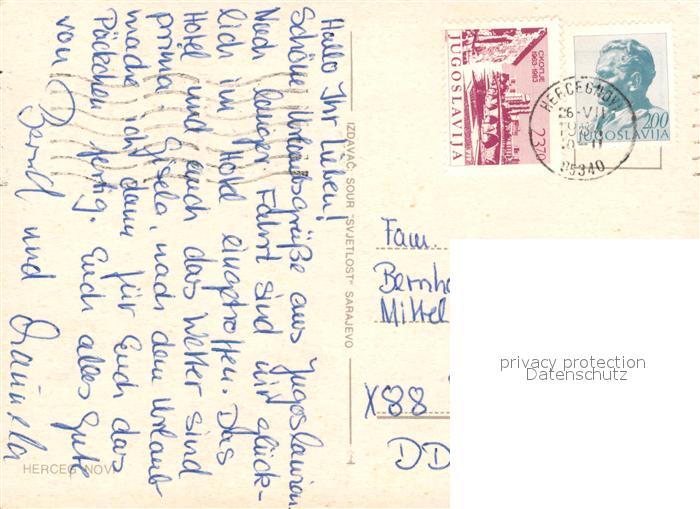 Hallo Ihr Lieben!
Schöne Urlaubsgrüße aus Jugoslawien.
Nach langer Fahrt sind wir glück-
lich im Hotel eingetroffen. Das
Hotel und auch das Wetter sind
prima. Gisela, nach dem Urlaub
mache ich dann für Euch das
Päckchen fertig. Euch alles Gute
von Bernd und Daniela
HERCEG NOVI
IZDAVAČ: SOUR "SVJETLOST" SARAJEVO
СКОПЈЕ
1963-1983
23,70
JUGOSLAVIJA
2,00
JUGOSLAVIJA
HERCEGNOVI
85340
Fam.
Bernh
Mittel
X88
DD
privacy protection
Datenschutz